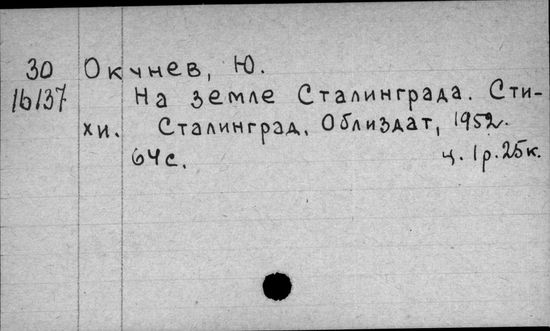 30 Окунев, Ю.
16137 На земле Сталинграда. Сти-
хи. Сталинград, Облиздат, 1952.
64с. ц. 1р.25к.